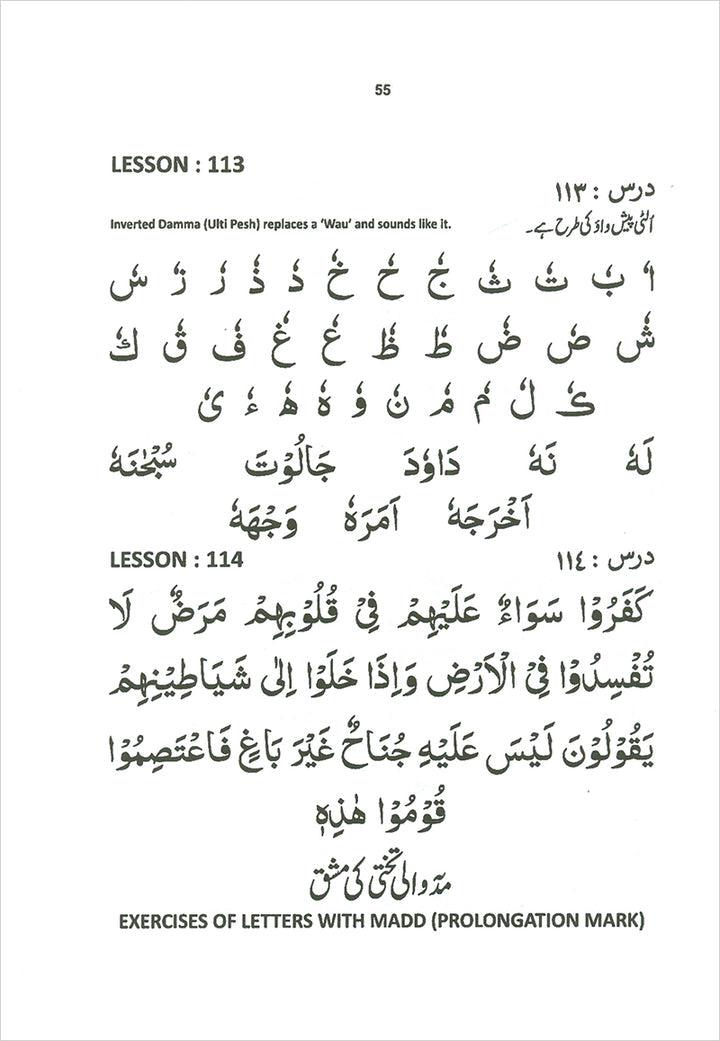 55
LESSON : 113
درس : ١١٣
Inverted Damma (Ulti Pesh) replaces a ‘Wau’ and sounds like it.
اُلٹی پیش واؤ کی طرح ہے۔
اٗ بٗ تٗ ثٗ جٗ حٗ خٗ دٗ ذٗ رٗ زٗ سٗ
شٗ صٗ ضٗ طٗ ظٗ عٗ غٗ فٗ قٗ كٗ
کٗ لٗ مٗ مٗ نٗ وٗ هٗ ھٗ ءٗ یٗ
لَهٗ نَهٗ دَاوٗدَ جَالُوْتَ سُبْحٰنَهٗ
اَخْرَجَهٗ اَمَرَهٗ وَجْهَهٗ
LESSON : 114
درس : ١١٤
كَفَرُوْا سَوَاءٌ عَلَيْهِمْ فِيْ قُلُوْبِهِمْ مَرَضٌ لَا
تُفْسِدُوْا فِي الْاَرْضِ وَاِذَا خَلَوْا اِلٰى شَيَاطِيْنِهِمْ
يَقُوْلُوْنَ لَيْسَ عَلَيْهِ جُنَاحٌ غَيْرَ بَاغٍ فَاعْتَصِمُوْا
قُوْمُوْا هٰذِهٖ
مدّ والی تختی کی مشق
EXERCISES OF LETTERS WITH MADD (PROLONGATION MARK)